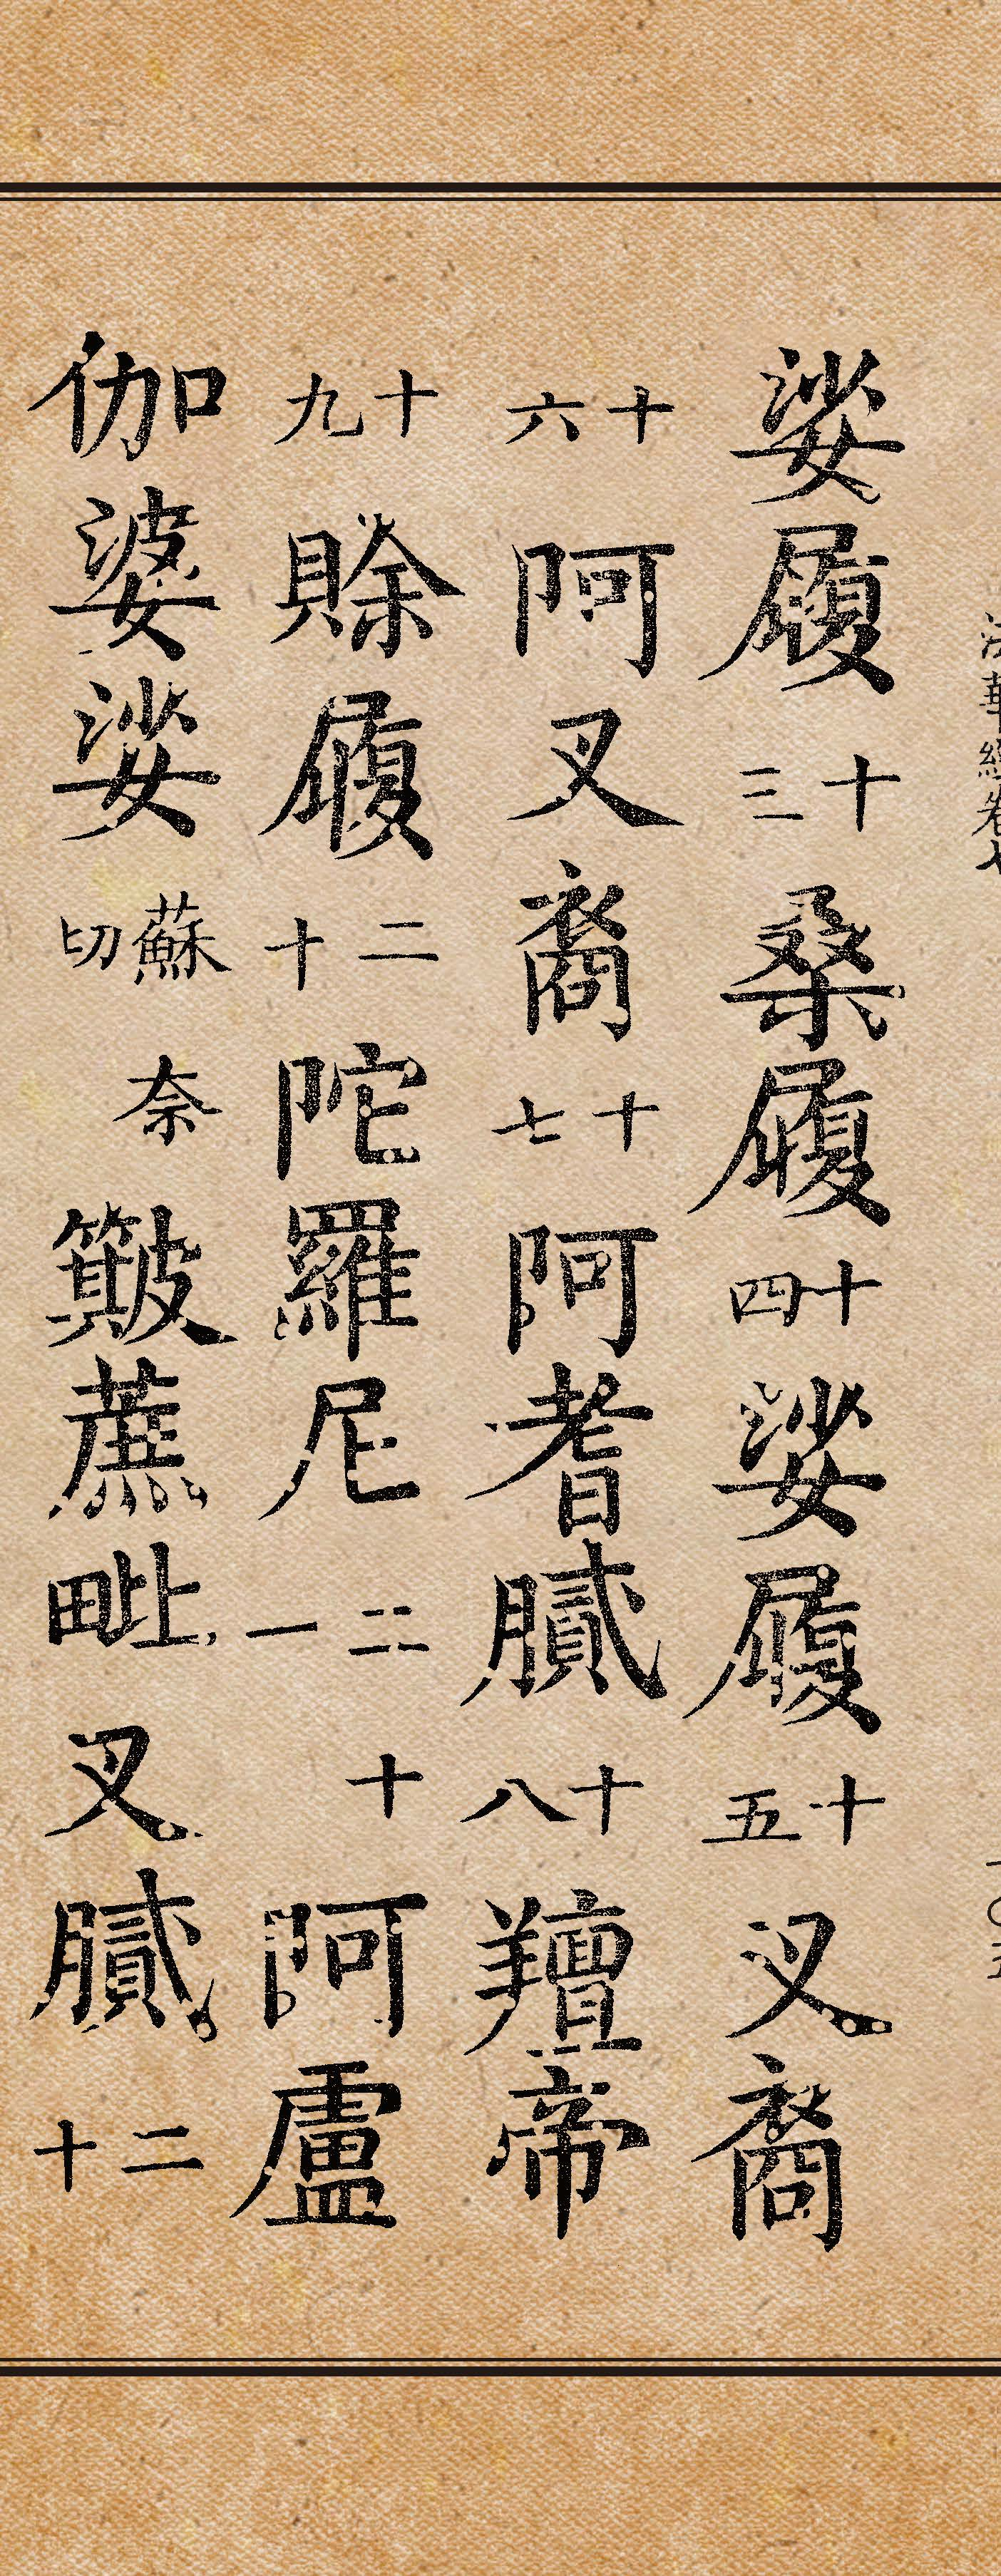 法華經卷七 一〇五
娑履十三桑履十四娑履十五叉裔
十六阿叉裔十七阿耆膩十八羶帝
十九賖履二十陀羅尼二十一阿盧
伽婆娑蘇奈切簸蔗毗叉膩二十二